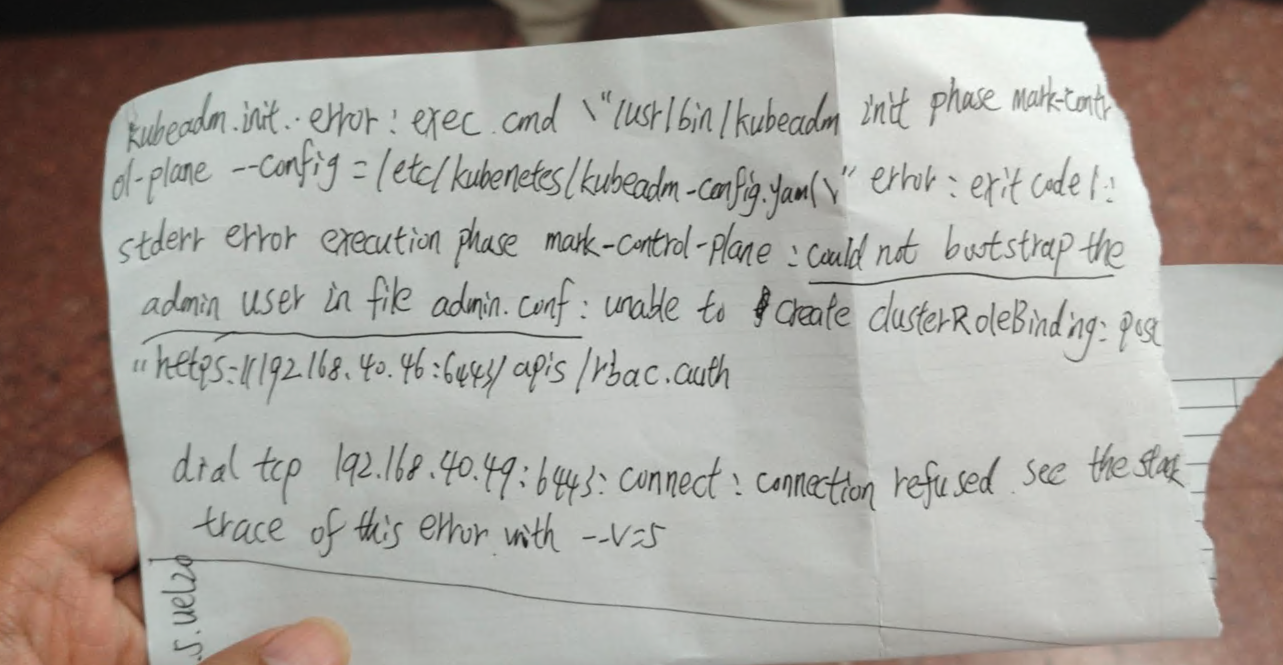 kubeadm.init.. error: exec.cmd \"/usr/bin/kubeadm init phase mark-contr
ol-plane --config=/etc/kubenetes/kubeadm-config.yaml\" error: exit code 1:
stderr error execution phase mark-control-plane: could not bootstrap the
admin user in file admin.conf: unable to create clusterRoleBinding: post
"https://192.168.40.46:6443/apis/rbac.auth
dial tcp 192.168.40.49:6443: connect: connection refused. see the stack
trace of this error with --v=5